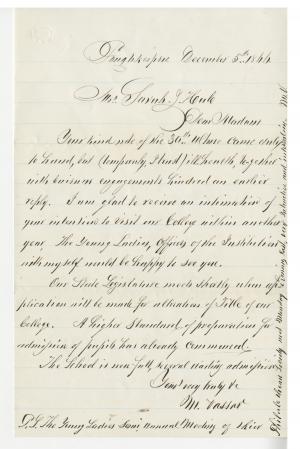 Poughkeepsie December 5th 1866
Mrs. Sarah J. Hale
Dear Madam
Your kind note of the 30th Ultimo came duly
to hand, but Company, & ill health, together
with business engagements hindered an earlier
reply. I am glad to receive an intimation of
your intention to visit our College within another
year. The Young Ladies, Officers of the Institution
with myself would be happy to see you.
Our State Legislature meets shortly when ap-
plication will be made for alteration of Title of our
College. A higher Standard of preparation for
admission of pupils has already commenced.
The School is now full, several waiting admission
Yours very truly &c
M. Vassar
P.S. The Young Ladies Semi Annual Meeting of their
Philalethean Society met Thursday Evening last, very and interesting M.V.